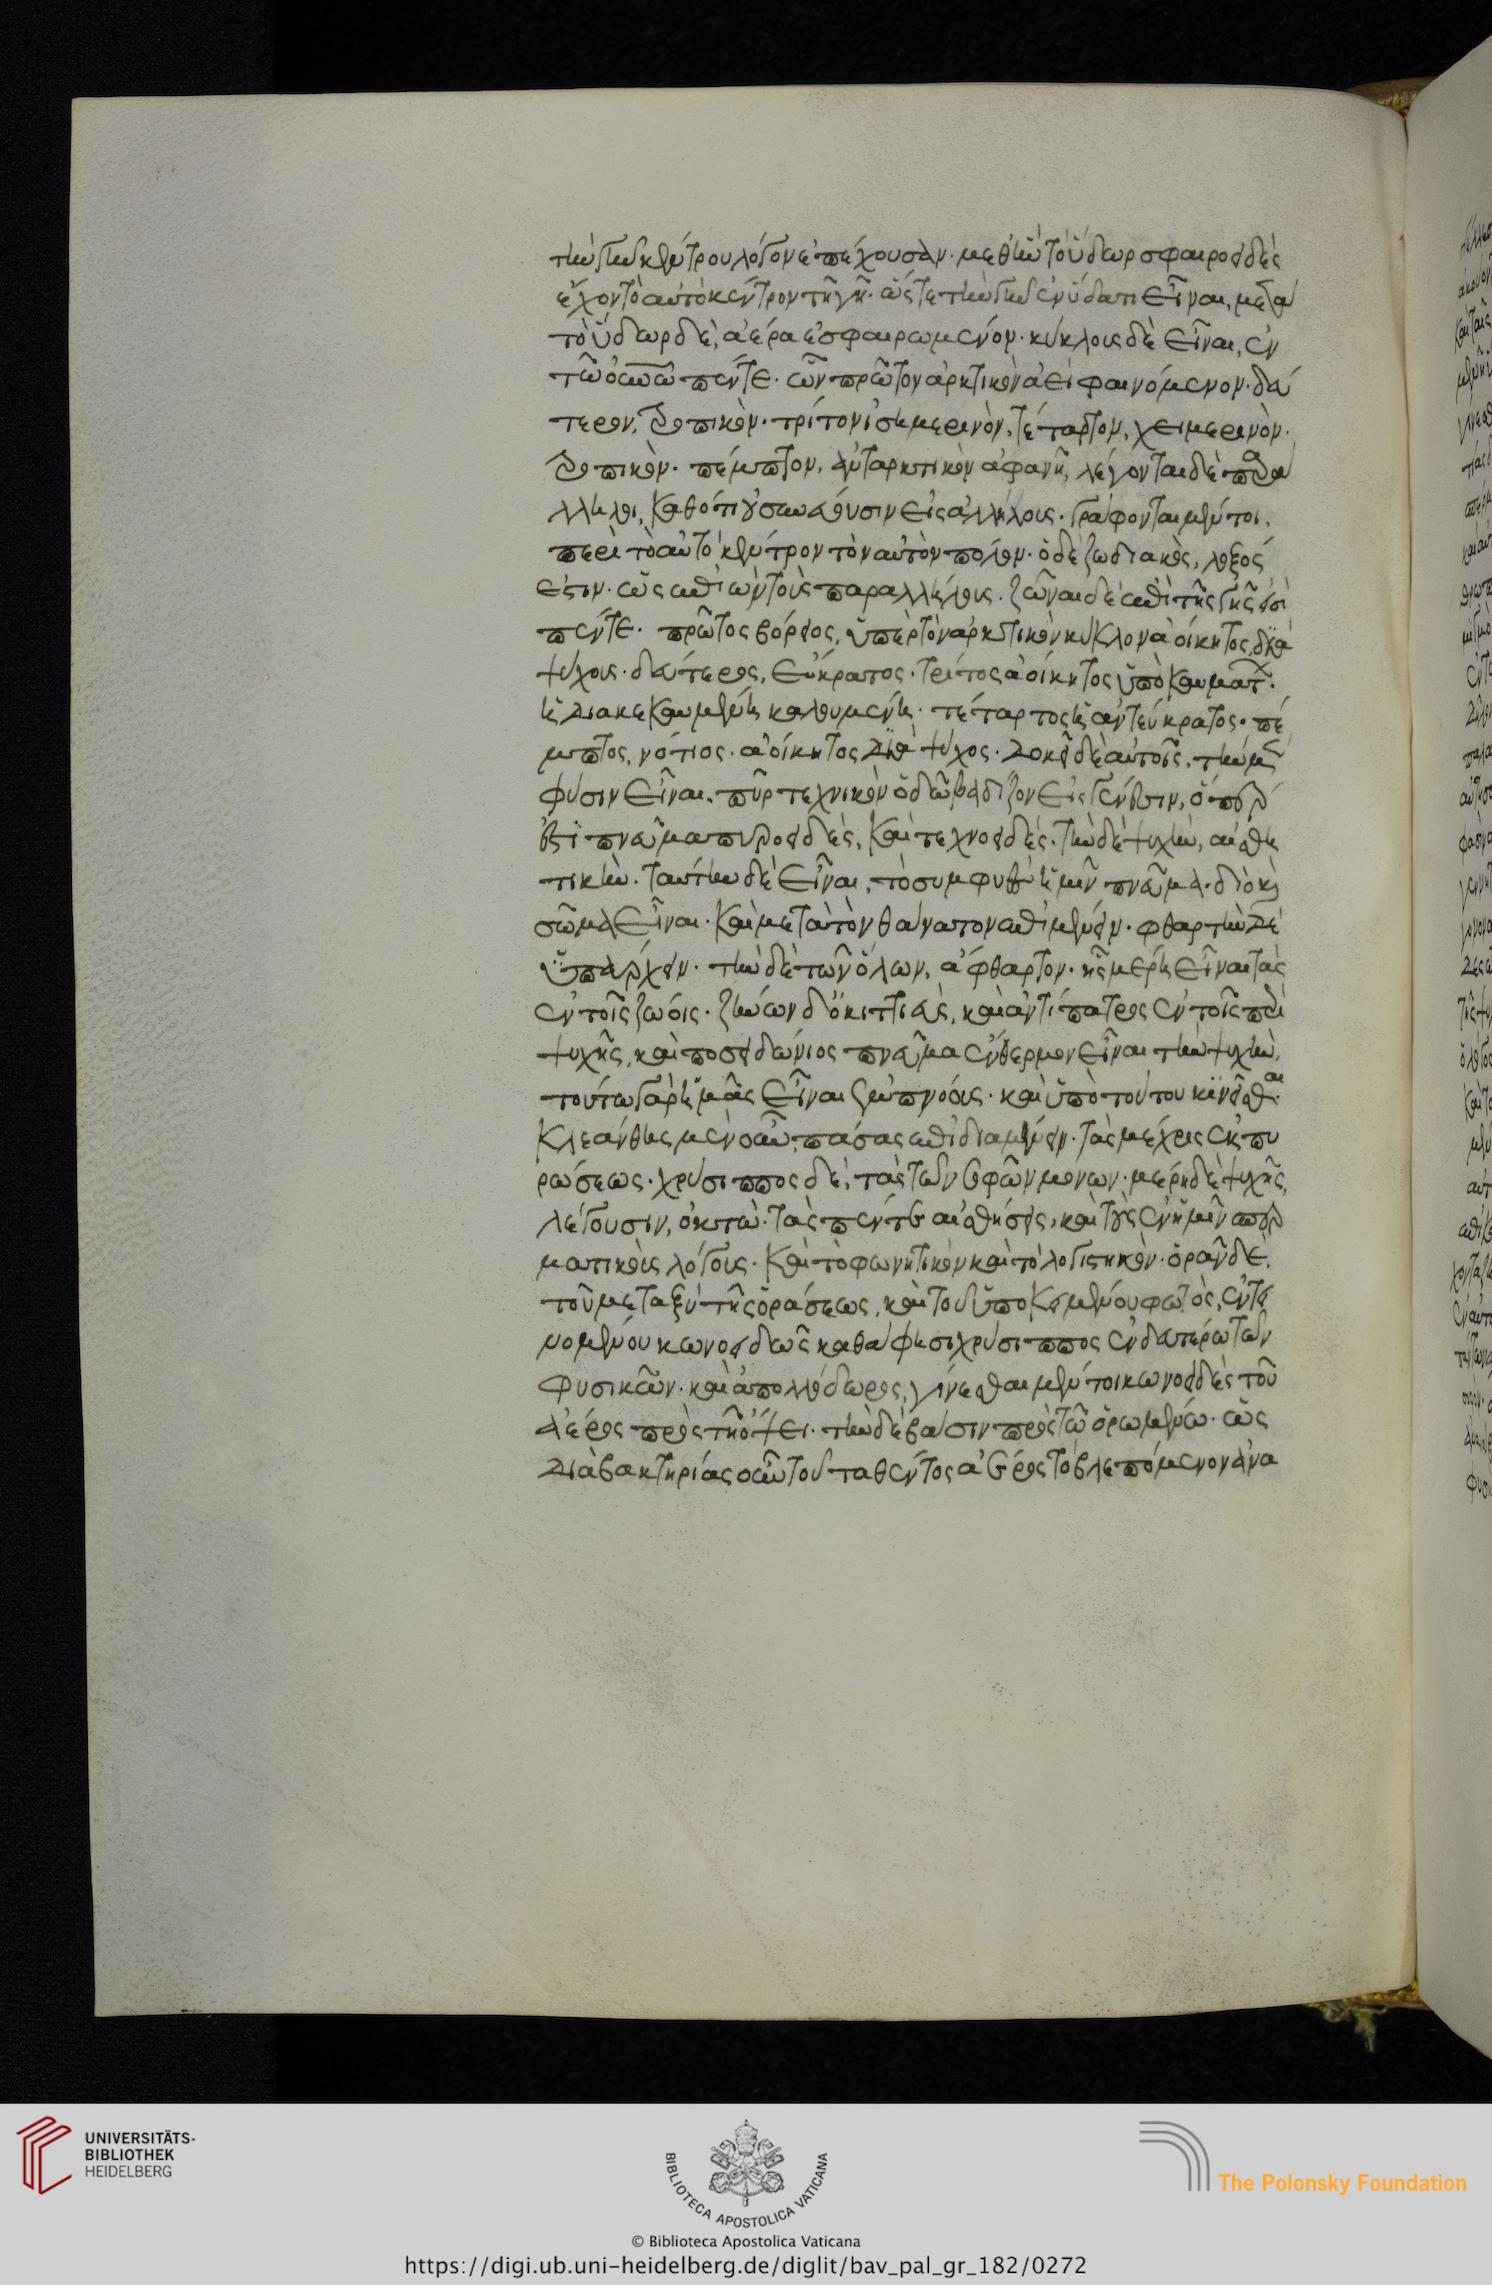 τὴν γῆν κέντρου λόγον ἐπέχουσαν· μεθ' ἣν τὸ ὕδωρ σφαιροειδὲς
ἔχον τὸ αὐτὸ κέντρον τῆ γῆ· ὥςτε τὴν γῆν ἐν ὕδατι εἶναι, μετὰ
τὸ ὕδωρ δὲ, ἀέρα ἐσφαιρωμένον· κύκλους δὲ εἶναι, ἐν
τῶ οὐνῶ πέντε· ὧν πρῶτον ἀρκτικὸν ἀεὶ φαινόμενον· δεύ
τερον, τροπικὸν· τρίτον ἰσημερινὸν, τέταρτον, χειμερινὸν·
τροπικὸν· πέμπτον, ἀνταρκτικὸν ἀφανῆ, λέγονται δὲ παρα
λληλοι, καθότι οὐ συννεύουσιν εἰς ἀλλήλους· γράφονται μέντοι,
περὶ τὸ αὐτὸ κέντρον τὸν αὐτὸν πόλον· ὁ δὲ ζωδιακὸς, λοξός
ἐςιν· ὡς ἐπιὼν τοὺς παραλλήλους· ζῶναι δὲ ἐπὶ τῆς γῆς εἰσὶ
πέντε· πρῶτος βόρειος, ὑπὲρ τὸν ἀρκτικὸν κύκλον ἀοίκητος, διὰ
ψύχους· δεύτερος, εὔκρατος· τρίτος ἀοίκητος ὑπὸ καυμάτ·
ἡ διακεκαυμένη καλουμένη· τέταρτος ἡ ἀντεύκρατος· πέ
μπτος, νότιος· ἀοίκητος διὰ ψύχος· δοκεῖ δὲ αὐτοῖς, τὴν μὲν
φύσιν εἶναι, πῦρ τεχνικὸν ὁδῶ βαδίζον εἰς γένεσιν, ὅπερ
ἐςὶ πνεῦμα πυροειδὲς, καὶ τεχνοειδές· τὴν δὲ ψυχὴν, αἰσθη
τικὴν· ταύτην δὲ εἶναι, τὸ συμφυὲς ἡμῖν πνεῦμα· διὸ καὶ
σῶμα εἶναι· καὶ μετὰ τὸν θάνατον ἐπιμένειν· φθαρτὴν δὲ
ὑπάρχειν· τὴν δὲ τῶν ὅλων, ἄφθαρτον· ἧς μέρη εἶναι τὰς
ἐν τοῖς ζώοις· ζήνων δ' ὁ κιττιεὺς, καὶ ἀντίπατρος ἐν τοῖς περὶ
ψυχῆς, καὶ ποσειδώνιος πνεῦμα ἔνθερμον εἶναι τὴν ψυχὴν,
τούτω γὰρ ἡμᾶς εἶναι ἐμπνόους· καὶ ὑπὸ τούτου κινεῖσθαι
κλεάνθης μὲν οὖν, πάσας ἐπιδιαμένειν· τὰς μέχρις ἐκπυ
ρώσεως· χρύσιππος δὲ, τὰς τῶν σοφῶν μόνων· μέρη δὲ ψυχῆς,
λέγουσιν, ὀκτὼ· τὰς πέντε αἰσθήσεις, καὶ τοὺς ἐν ἡμῖν σπερ
ματικοὺς λόγους· καὶ τὸ φωνητικὸν καὶ τὸ λογιςτικὸν· ὁρᾶν δὲ,
τοῦ μεταξὺ τῆς ὁράσεως, καὶ τοῦ ὑποκειμένου φωτὸς, ἐντει
νομένου κωνοειδῶς καθά φησι χρύσιππος ἐν δευτέρω τῶν
φυσικῶν· καὶ ἀπολλόδωρος, γίνεσθαι μέντοι κωνοειδὲς τοῦ
ἀέρος πρὸς τῆ ὄψει· τὴν δὲ βάσιν πρὸς τῶ ὁρωμένω· ὡς
διὰ βακτηρίας οὖν τοῦ ταθέντος ἀέρος τὸ βλεπόμενον ἀνα
UNIVERSITÄTS-
BIBLIOTHEK
HEIDELBERG
BIBLIOTECA APOSTOLICA VATICANA
The Polonsky Foundation
© Biblioteca Apostolica Vaticana
https://digi.ub.uni-heidelberg.de/diglit/bav_pal_gr_182/0272